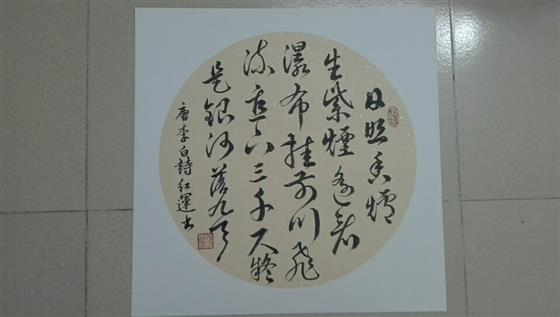 日照香爐
生紫煙遥看
瀑布挂前川飛
流直下三千尺疑
是銀河落九天
唐李白詩紅運书